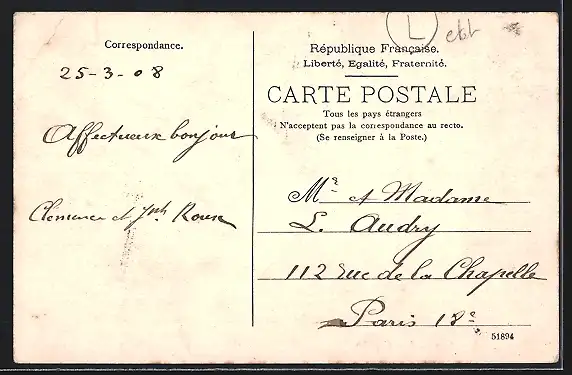 Correspondance.
25-3-08
Affectueux bonjour
Clemence et Jph Roux
République Française.
Liberté, Egalité, Fraternité.
CARTE POSTALE
Tous les pays étrangers
N'acceptent pas la correspondance au recto.
(Se renseigner à la Poste.)
L
Mr et Madame
L. Audry
112 rue de la Chapelle
Paris 18e
51894